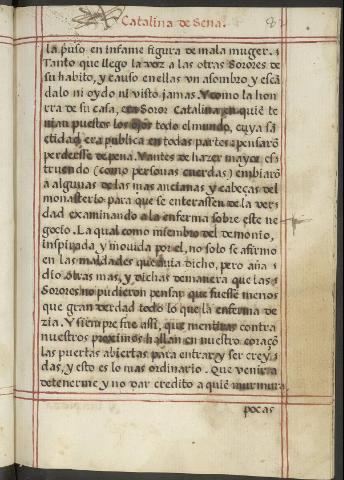 Catalina de Sena.
82
la puso en infame figura de mala muger.
Tanto que llego la voz a las otras Sorores de
su habito, y causo en ellas un asombro, y escã
dalo ni oydo ni visto jamas. Y como la hon
rra de su casa, era Soror Catalina en quiẽ te
nian puestos los ojos todo el mundo, cuya sã
ctidad era publica en todas partes: pensarõ
perderse de pena. Y antes de hazer mayor es
truendo (como personas cuerdas) embiarõ
a algunas de las mas ancianas y cabeças del
monasterio para que se enterassen de la ver
dad examinando a la enferma sobre este ne
gocio. La qual como miembro del demonio,
inspirada y movida por el, no solo se afirmo
en las maldades que avia dicho, pero aña
dio otras mas, y dichas de manera que las
Sorores no pudieron pensar que fuesse menos
que gran verdad todo lo que la enferma de
zia. Y siempre fue assi, que mentiras contra
nuestros proximos hallan en nuestro coraçõ
las puertas abiertas para entrar y ser crey
das, y esto es lo mas ordinario. Que venir a
detenerme y no dar credito a quiẽ murmura,
pocas